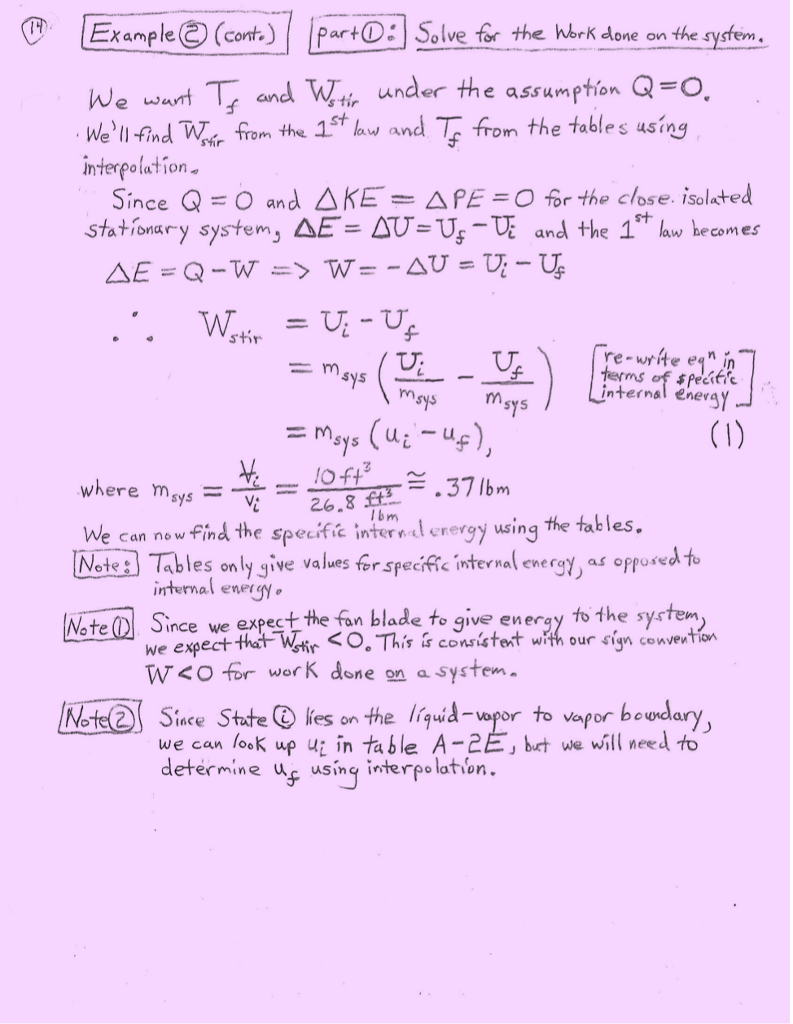 14
Example ② (cont.) part ①: Solve for the Work done on the system.
We want T_f and W_stir under the assumption Q=0.
We'll find W_stir from the 1st law and T_f from the tables using
interpolation.
Since Q = 0 and ΔKE = ΔPE = 0 for the close. isolated
stationary system, ΔE = ΔU = U_f - U_i and the 1st law becomes
ΔE = Q - W => W = -ΔU = U_i - U_f
∴ W_stir = U_i - U_f
= m_sys (U_i/m_sys - U_f/m_sys) [re-write eqn in terms of specific internal energy]
= m_sys (u_i - u_f), (1)
where m_sys = V_i/v_i = 10 ft³/26.8 ft³/lbm ≅ .37 lbm
We can now find the specific internal energy using the tables.
Note: Tables only give values for specific internal energy, as opposed to
internal energy.
Note ① Since we expect the fan blade to give energy to the system,
we expect that W_stir < 0. This is consistent with our sign convention
W < 0 for work done on a system.
Note ② Since State ⓘ lies on the liquid-vapor to vapor boundary,
we can look up u_i in table A-2E, but we will need to
determine u_f using interpolation.